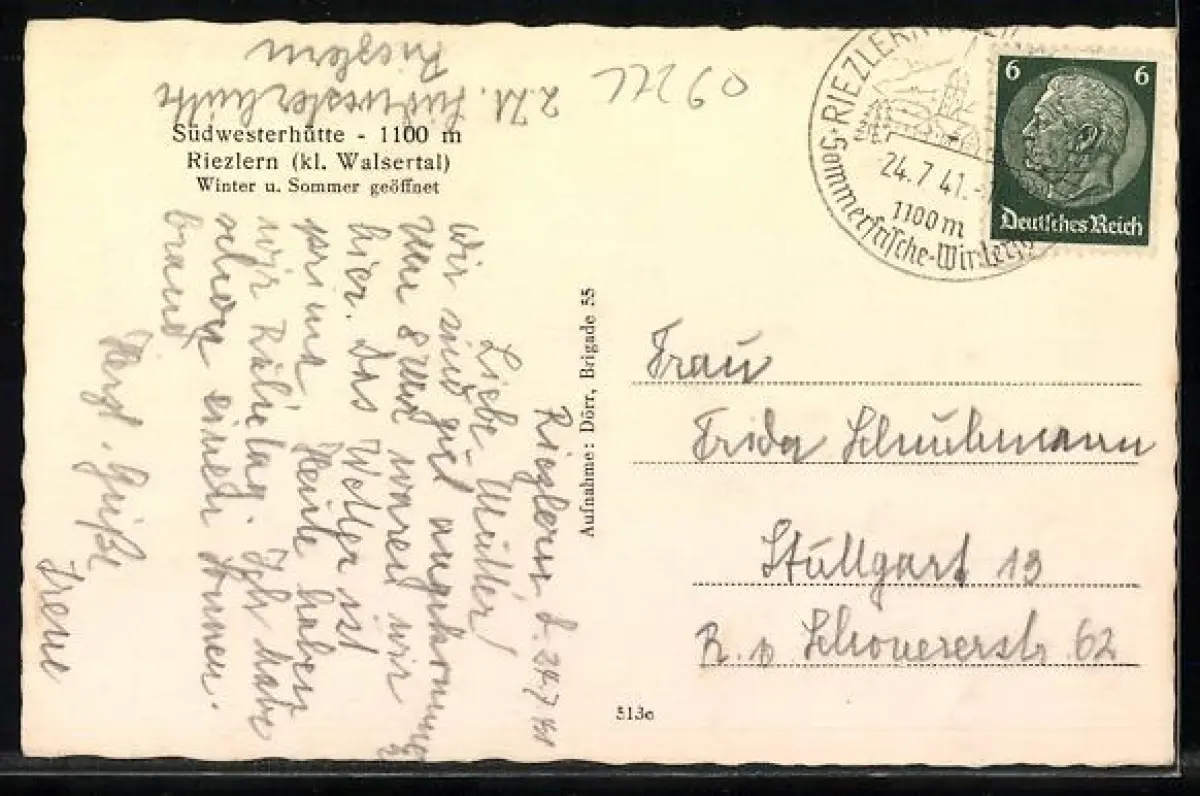 2. Zt. Südwesterhütte
Riezlern
Südwesterhütte - 1100 m
Riezlern (kl. Walsertal)
Winter u. Sommer geöffnet
Riezlern, d. 24.7.41
Liebe Mutter!
Wir sind gut angekommen
um 8 Uhr waren wir
hier. Das Wetter ist
prima. Heute haben
wir Ruhetag. Ich habe
schon einen Sonnen-
brand
Herzl. Grüße
Irene
Aufnahme: Dörr, Brigade 55
513e
RIEZLERN
24.7.41.
1100 m
Sommerfrische-Winter
6 6
Deutsches Reich
Frau
Frida Schuhmann
Stuttgart 13
62